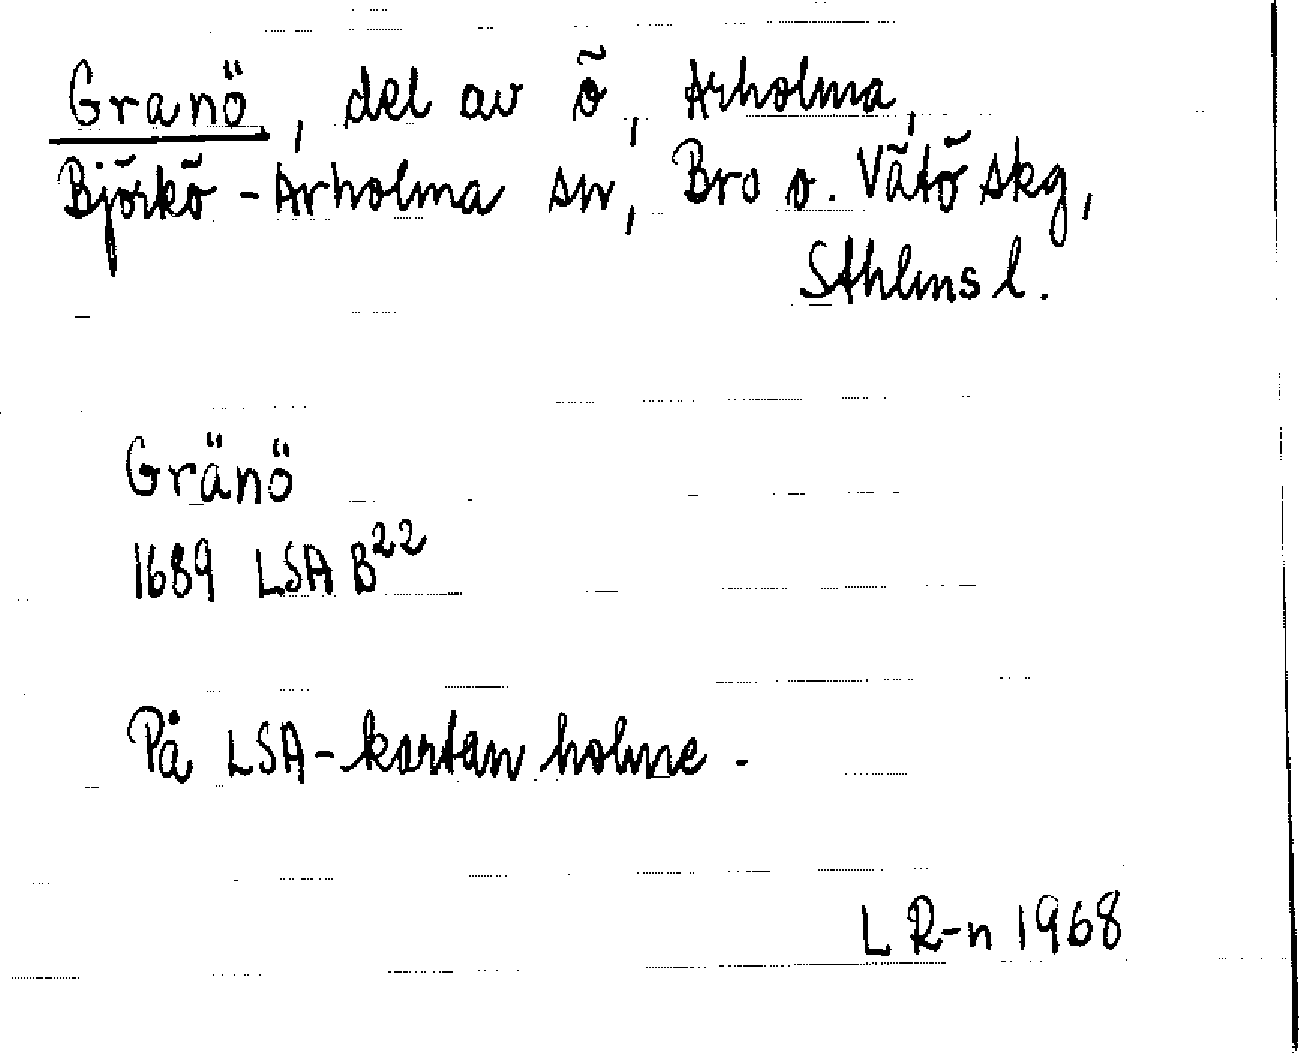 Granö, del av ö, Arholma,
Björkö-Arholma sn, Bro o. Vätö skg,
Sthlms l.
Gränö
1689 LSA B²²
På LSA-kartan holme.
L R-n 1968